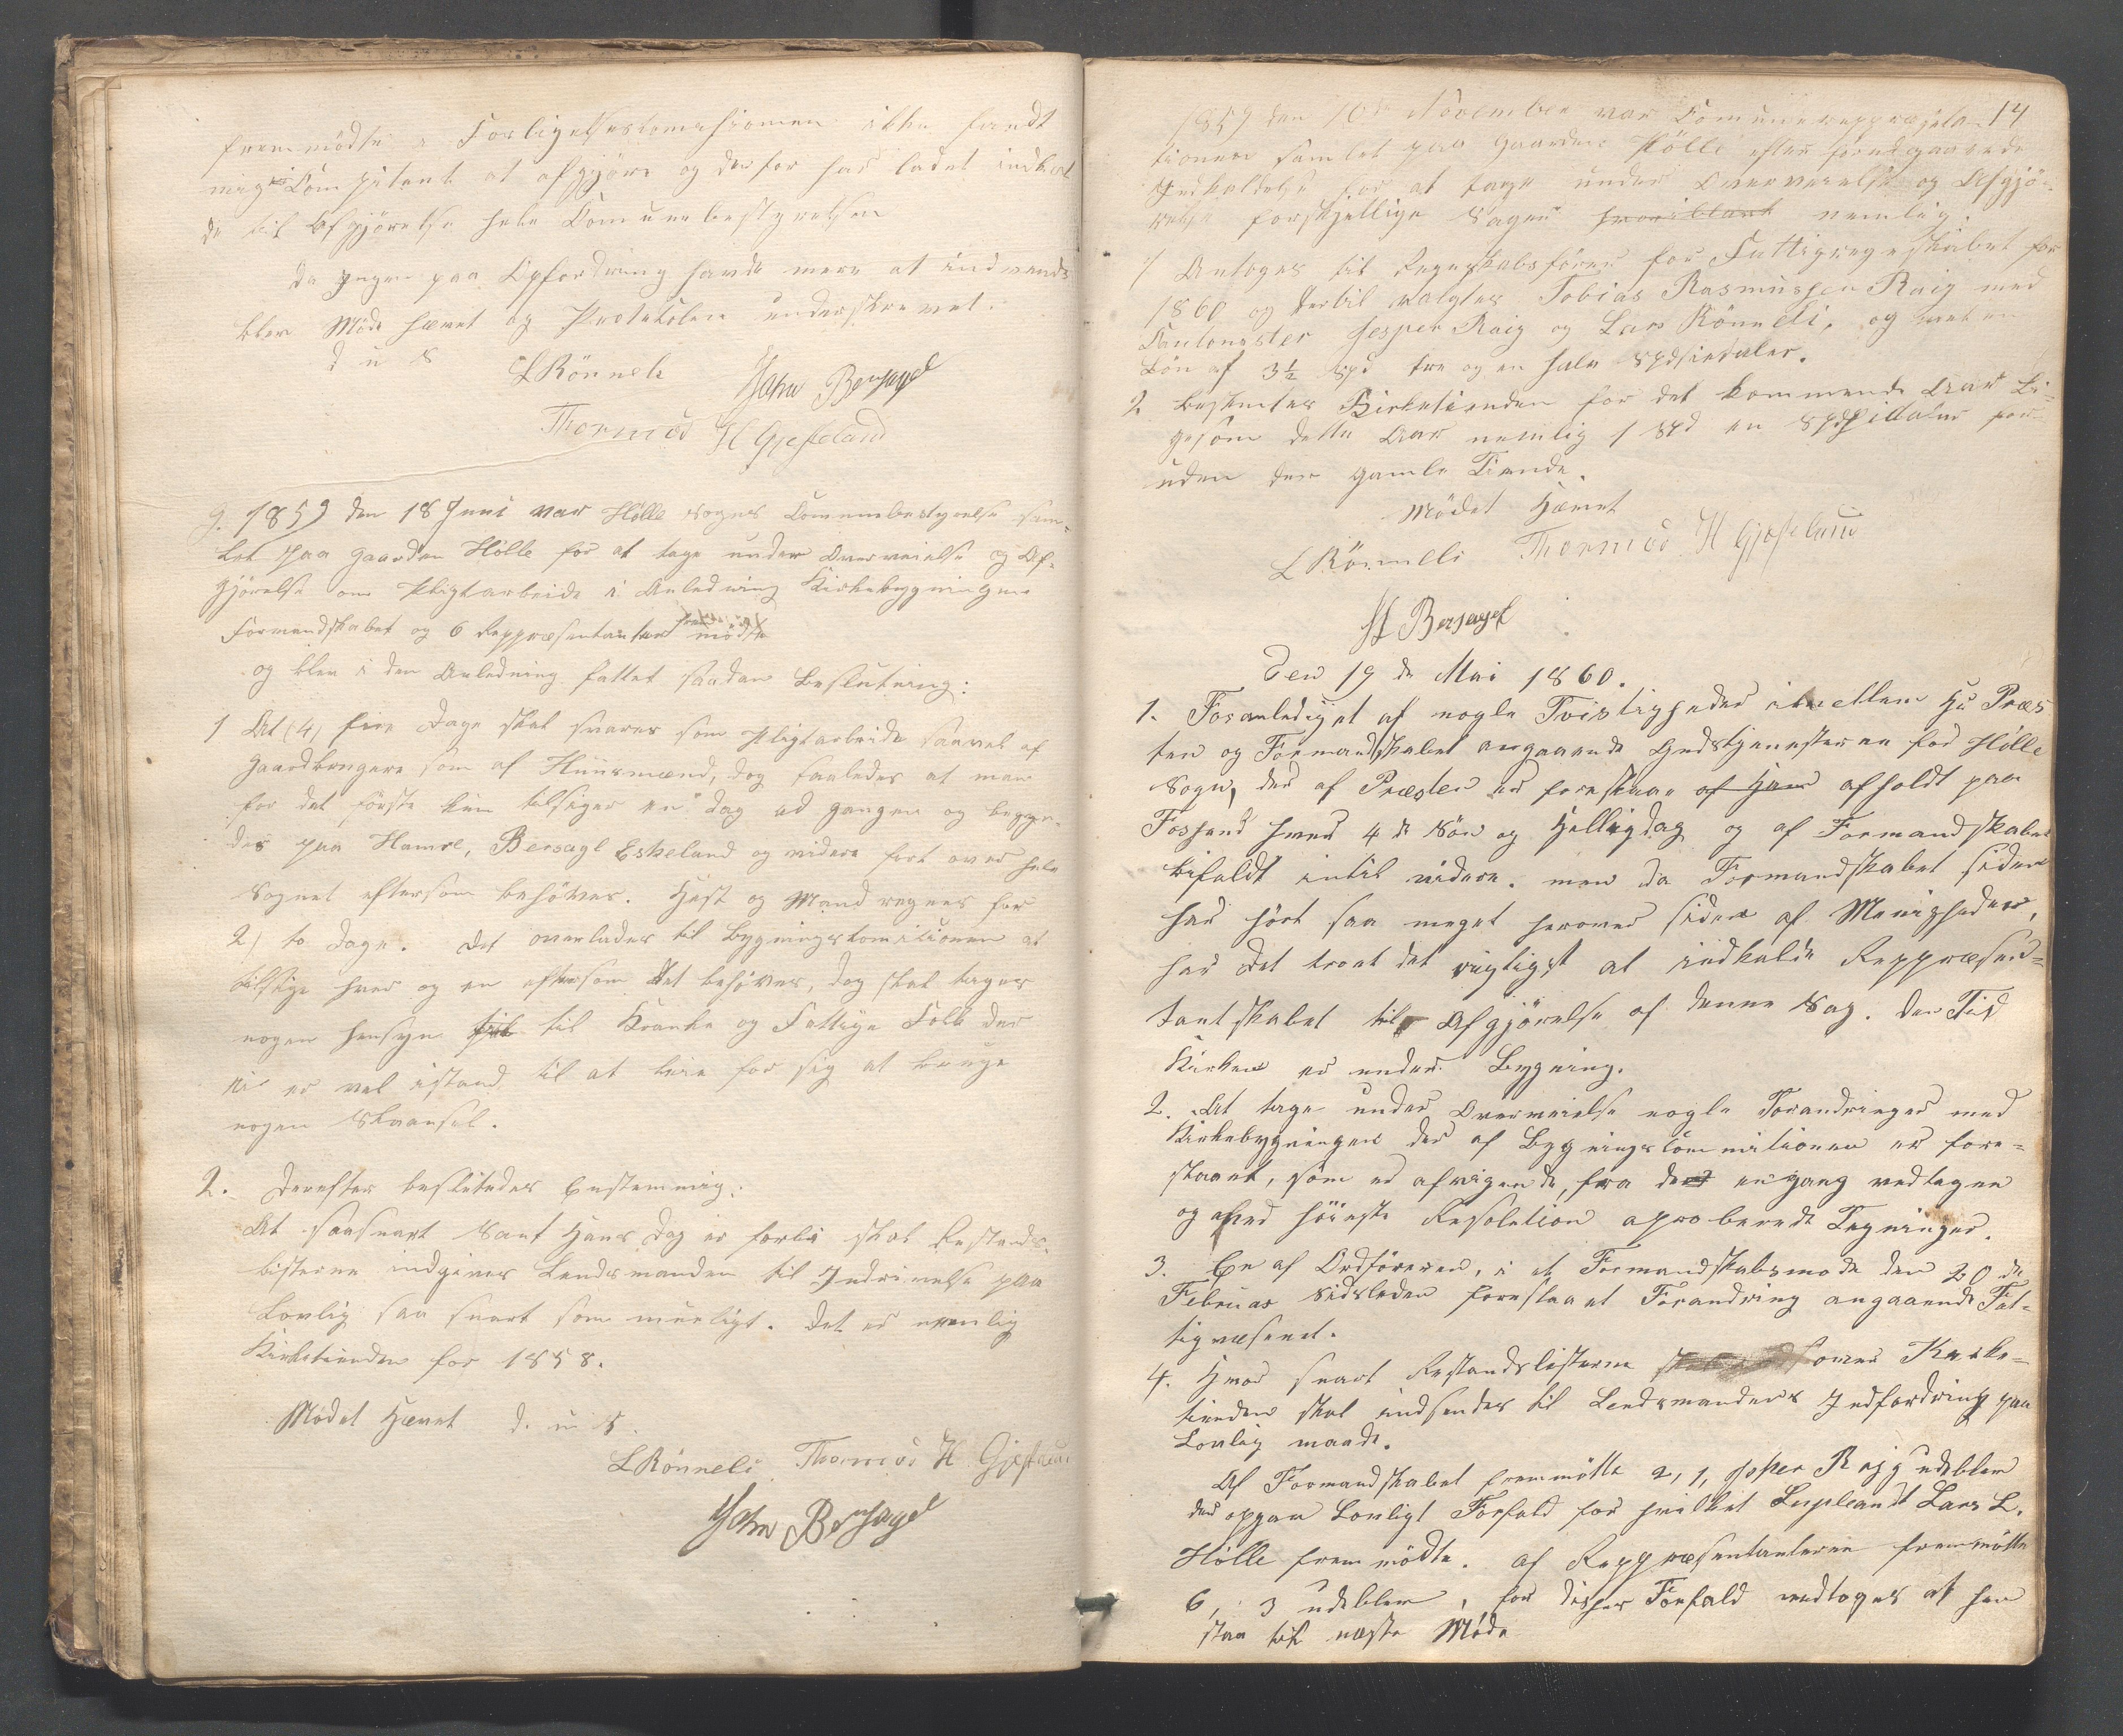 fremmödte, Forligelseskomisionen ikke fandt
sig Competent at afgjöre og derfor har ladet indkal
de til Afgjörelse hele Comunebestyrelsen
Da Ingen paa Opfordring havde mere at indvende
blev Möde hævet og Protokolen underskrevet.
d u S
LRönneli John Bersagel
Thormod H Gjesteland
9. 1859 den 18 Juni var Hölle Sogns Comunebestyrelse sam-
let paa Gaarden Hölle for at tage under Overveielse og Af-
gjörelse om Pligtarbeide i Anledning Kirkebygningen
Formandskabet og 6 Reppræsentanter mödte
og blev i den Anledning fattet saadan Beslutning:
1 At (4) fire Dage skal svares som Pligtarbeide saavel af
Gaardbrugere som af Huusmænd, dog saaledes at man
for det förste kun tilsiger en dag ad gangen og begyn-
des paa Hamre, Bersagl Eskeland og videre fort over hele
Sognet eftersom behöves. Hest og Mand regnes for
2) to dage. Det overlades til Bygningskomitionen at
tilsige hver og en eftersom det behöves, dog skal tages
nogen hensyn til til Kranke og Fattige Folk der
ei er vel istand til at leie for sig at bruge
nogen Skaansel.
2. Derefter besluttedes Enstemmig:
At saasnart Sant Hans Dag er forbi skal Restands-
listerne indgives Lendsmanden til Inddrivelse paa
Lovlig saa snart som mueligt. Det er nemlig
Kirketienden for 1858.
Mödet Hævet d. u S.
LRönneli Thormod H Gjesteland
John Bersagel
14
1859 den 10de November var Comunereppræsenta-
tionen samlet paa Gaarden Hölle efter foregaaende
Indkaldelse for at tage under Overveielse og Afgjö-
relse forskjellige Sager nemlig.
1 Antoges til Regnskabsförer for Fattigregnskabet for
1860 og dertil valgtes Tobias Rasmussen Raig med
Cautonister Jesper Raig og Lars Rönneli, og med en
Lön af 3½ Spd tre og en halv Spdsiedaler.
2 bestemtes Kirketienden for det kommende Aar Li-
gesom dette Aar nemlig 1 Spd en Spdsiedaler for-
uden den gamle Tiende.
Mödet Hævet
LRönneli Thormod H Gjesteland
JL Bersagel
Den 19de Mai 1860.
1. Foranlediget af nogle Tvistigheder imellem Hr Præs
ten og Formandskabet angaaende Gudstjenesterne for Hölle
Sogn, der af Præsten er foreslaae af Ham afholdt paa
Fossand hver 4de Sön og Helligdag og af Formandskabet
bifaldt intil videre. men da Formandskabet siden
har hört saa meget herover siden af Menigheden,
har det troet det rigtigst at indkalde Reppræsen-
tantskabet til Afgjörelse af denne Sag. Den Tid
Kirken er under Bygning.
2. At tage under Overveielse nogle Forandringer med
Kirkebygningen der af Bygningscommitionen er fore-
slaaet, som er afvigende, fra den engang vedtagen
og ved höieste Resolution approberede Tegninger.
3. En af Ordföreren, i et Formandskabsmöde den 20de
Februar sidsleden foreslaaet Forandring angaaende Fat-
tigvæsenet.
4. Hvor snart Restandslisterne over Kirke-
tienden skal indsendes til Lendsmandens Indfordring paa
Lovlig maade.
Af Formandskabet fremmötte 2, 1, Jesper Raig udeblev
der opgav Lovligt Forfald for hvilket Supleandt Lars L.
Hölle fremmödte. Af Reppræsentanterne fremmötte
6, 3 udeblev, for disses Forfald vedtoges at hen
staa til næste Möde